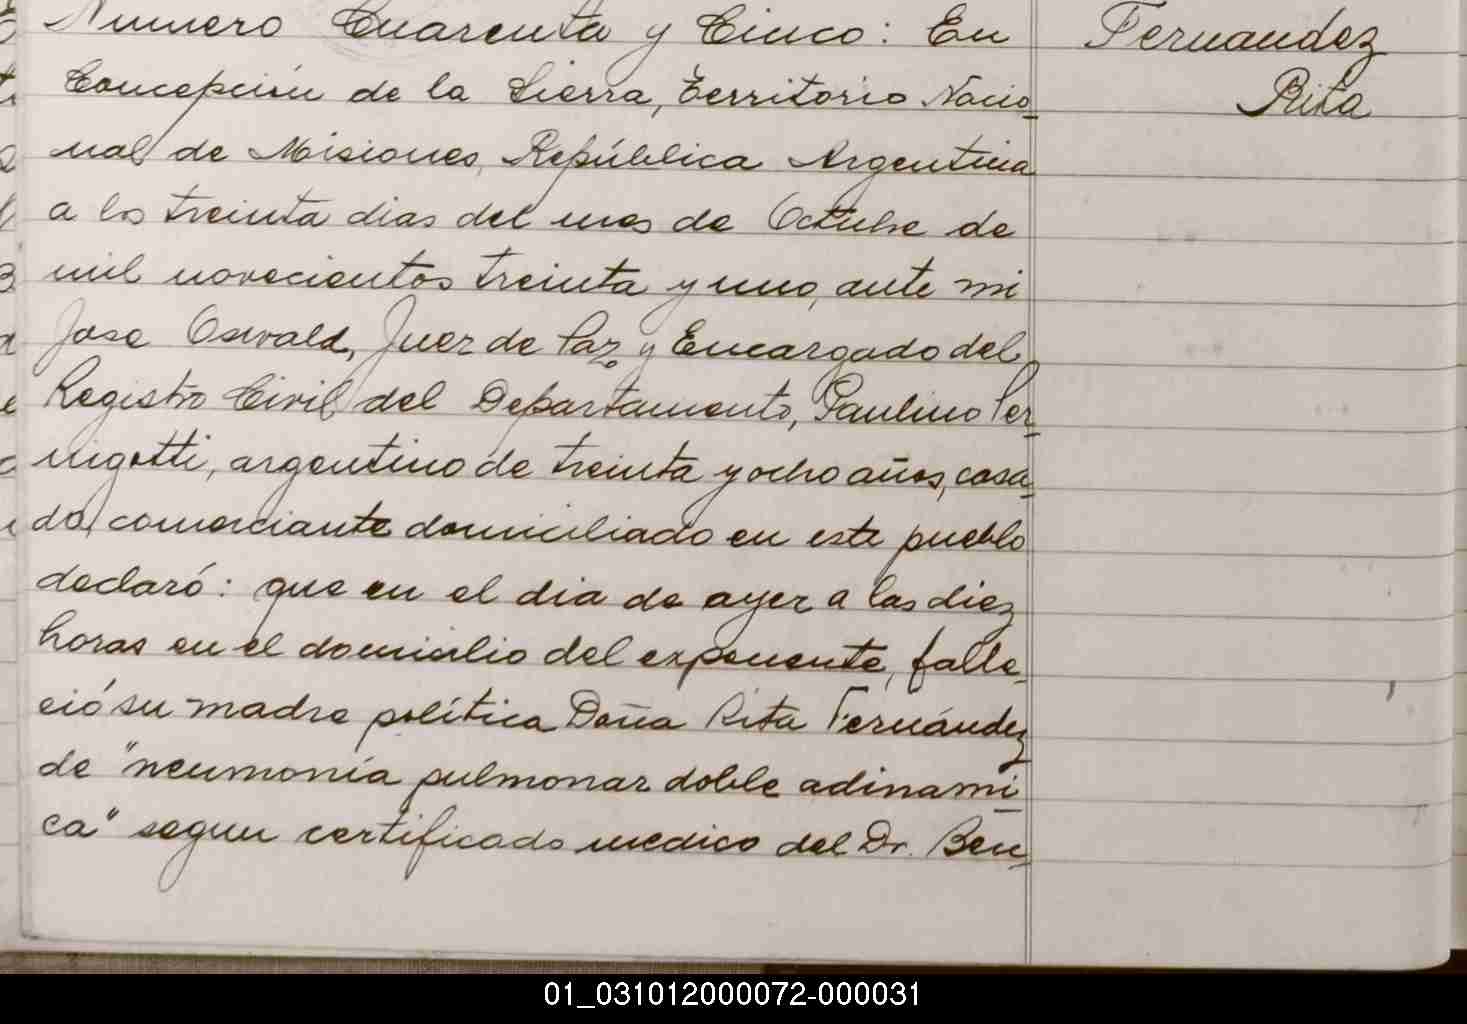 Numero Cuarenta y Cinco: En
Concepción de la Sierra, Territorio Nacio
nal de Misiones, República Argentina
a los treinta dias del mes de Octubre de
mil novecientos treinta y uno, ante mi
Jose Oswald, Juez de Paz y Encargado del
Registro Civil del Departamento, Paulino Per
nigotti, argentino de treinta y ocho años, casa
do, comerciante domiciliado en este pueblo
declaró: que en el dia de ayer a las diez
horas en el domicilio del exponente, falle
ció su madre política Doña Rita Fernández
de "neumonía pulmonar doble adinami
ca" segun certificado medico del Dr. Ben
Fernandez
Rita
01_031012000072-000031